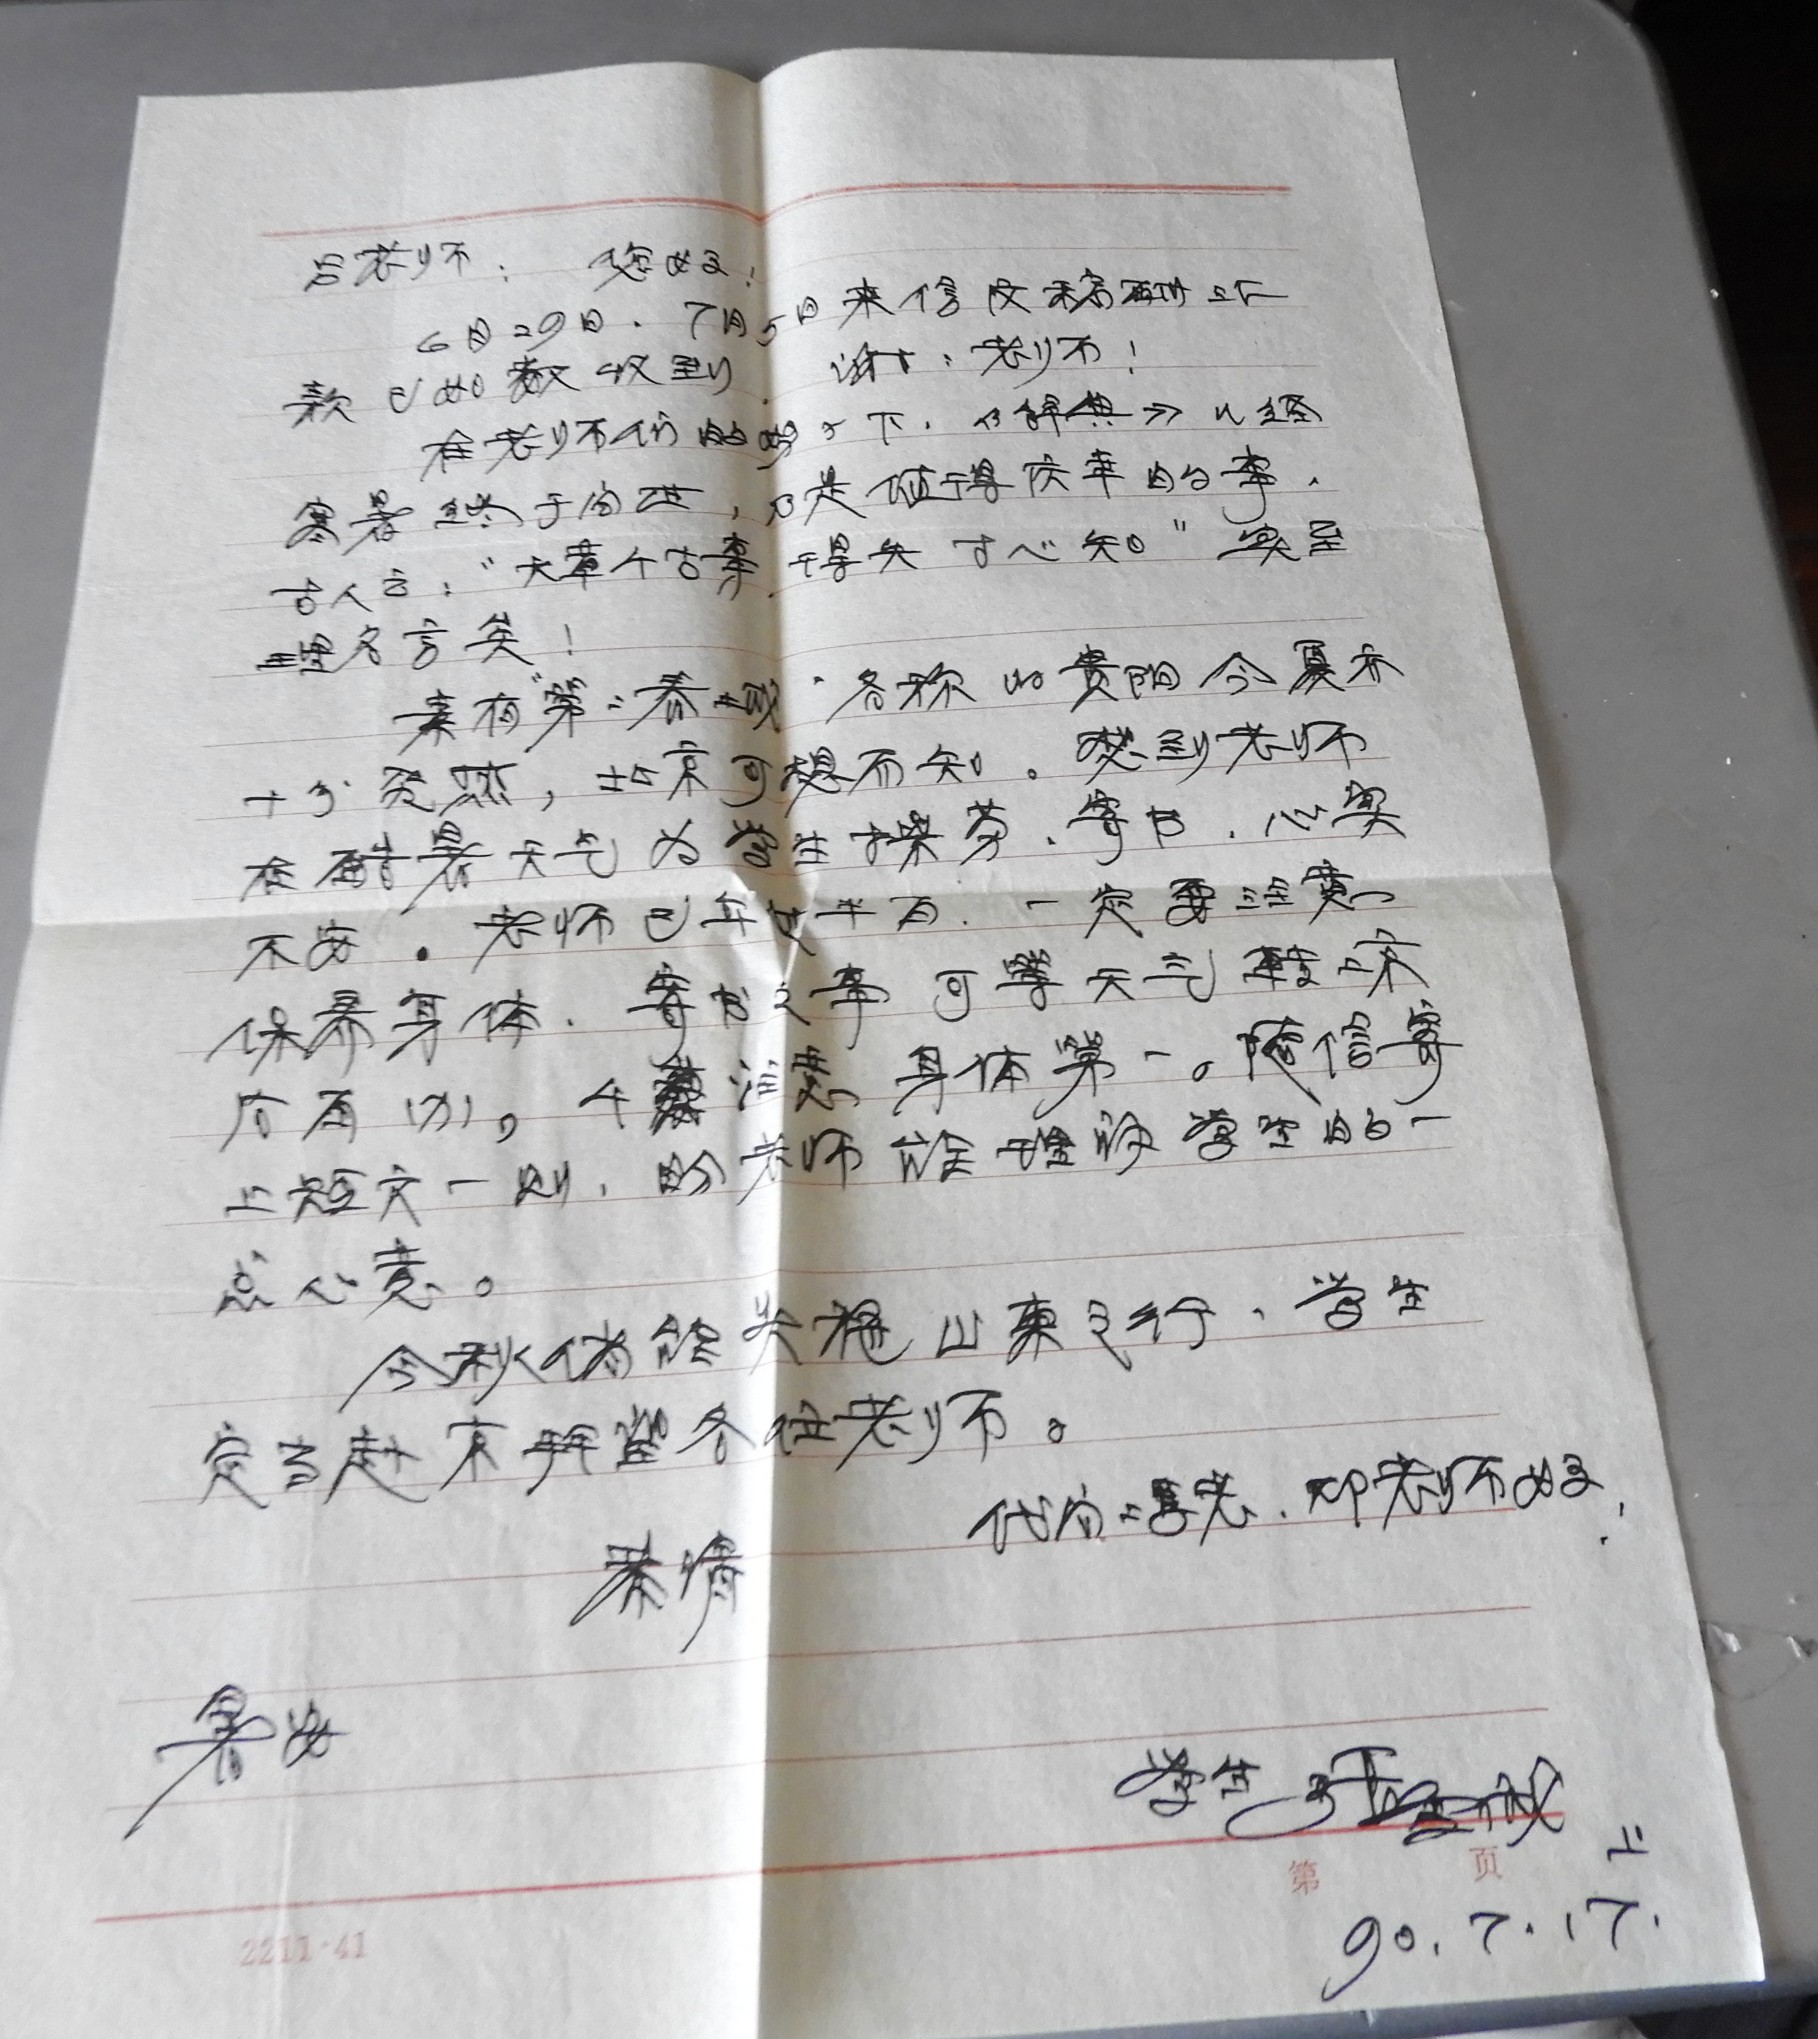 吕老师： 您好！
6月29日、7月5日来信及稿酬上
款已如数收到。谢谢老师！
在老师们的努力下，《辞典》几经
寒暑终于问世，乃是值得庆幸的事。
古人云："文章千古事，得失寸心知"实至
理名言矣！
素有"第二春城"名称的贵阳今夏亦
十分炎热，北京可想而知。感到老师
在酷暑天气为学生操劳、寄书，心实
不安。老师已年过半百，一定要注意
保养身体，寄书之事可等天气较凉
后再办。千万注意身体第一。随信寄
上短文一则，盼老师能理解学生的一
点心意。
今秋倘能实施山东之行，学生
定当赴京拜望各位老师。
代向冯老、邓老师好！
恭请
暑安
学生 上
90.7.17.
第 页
2211·41